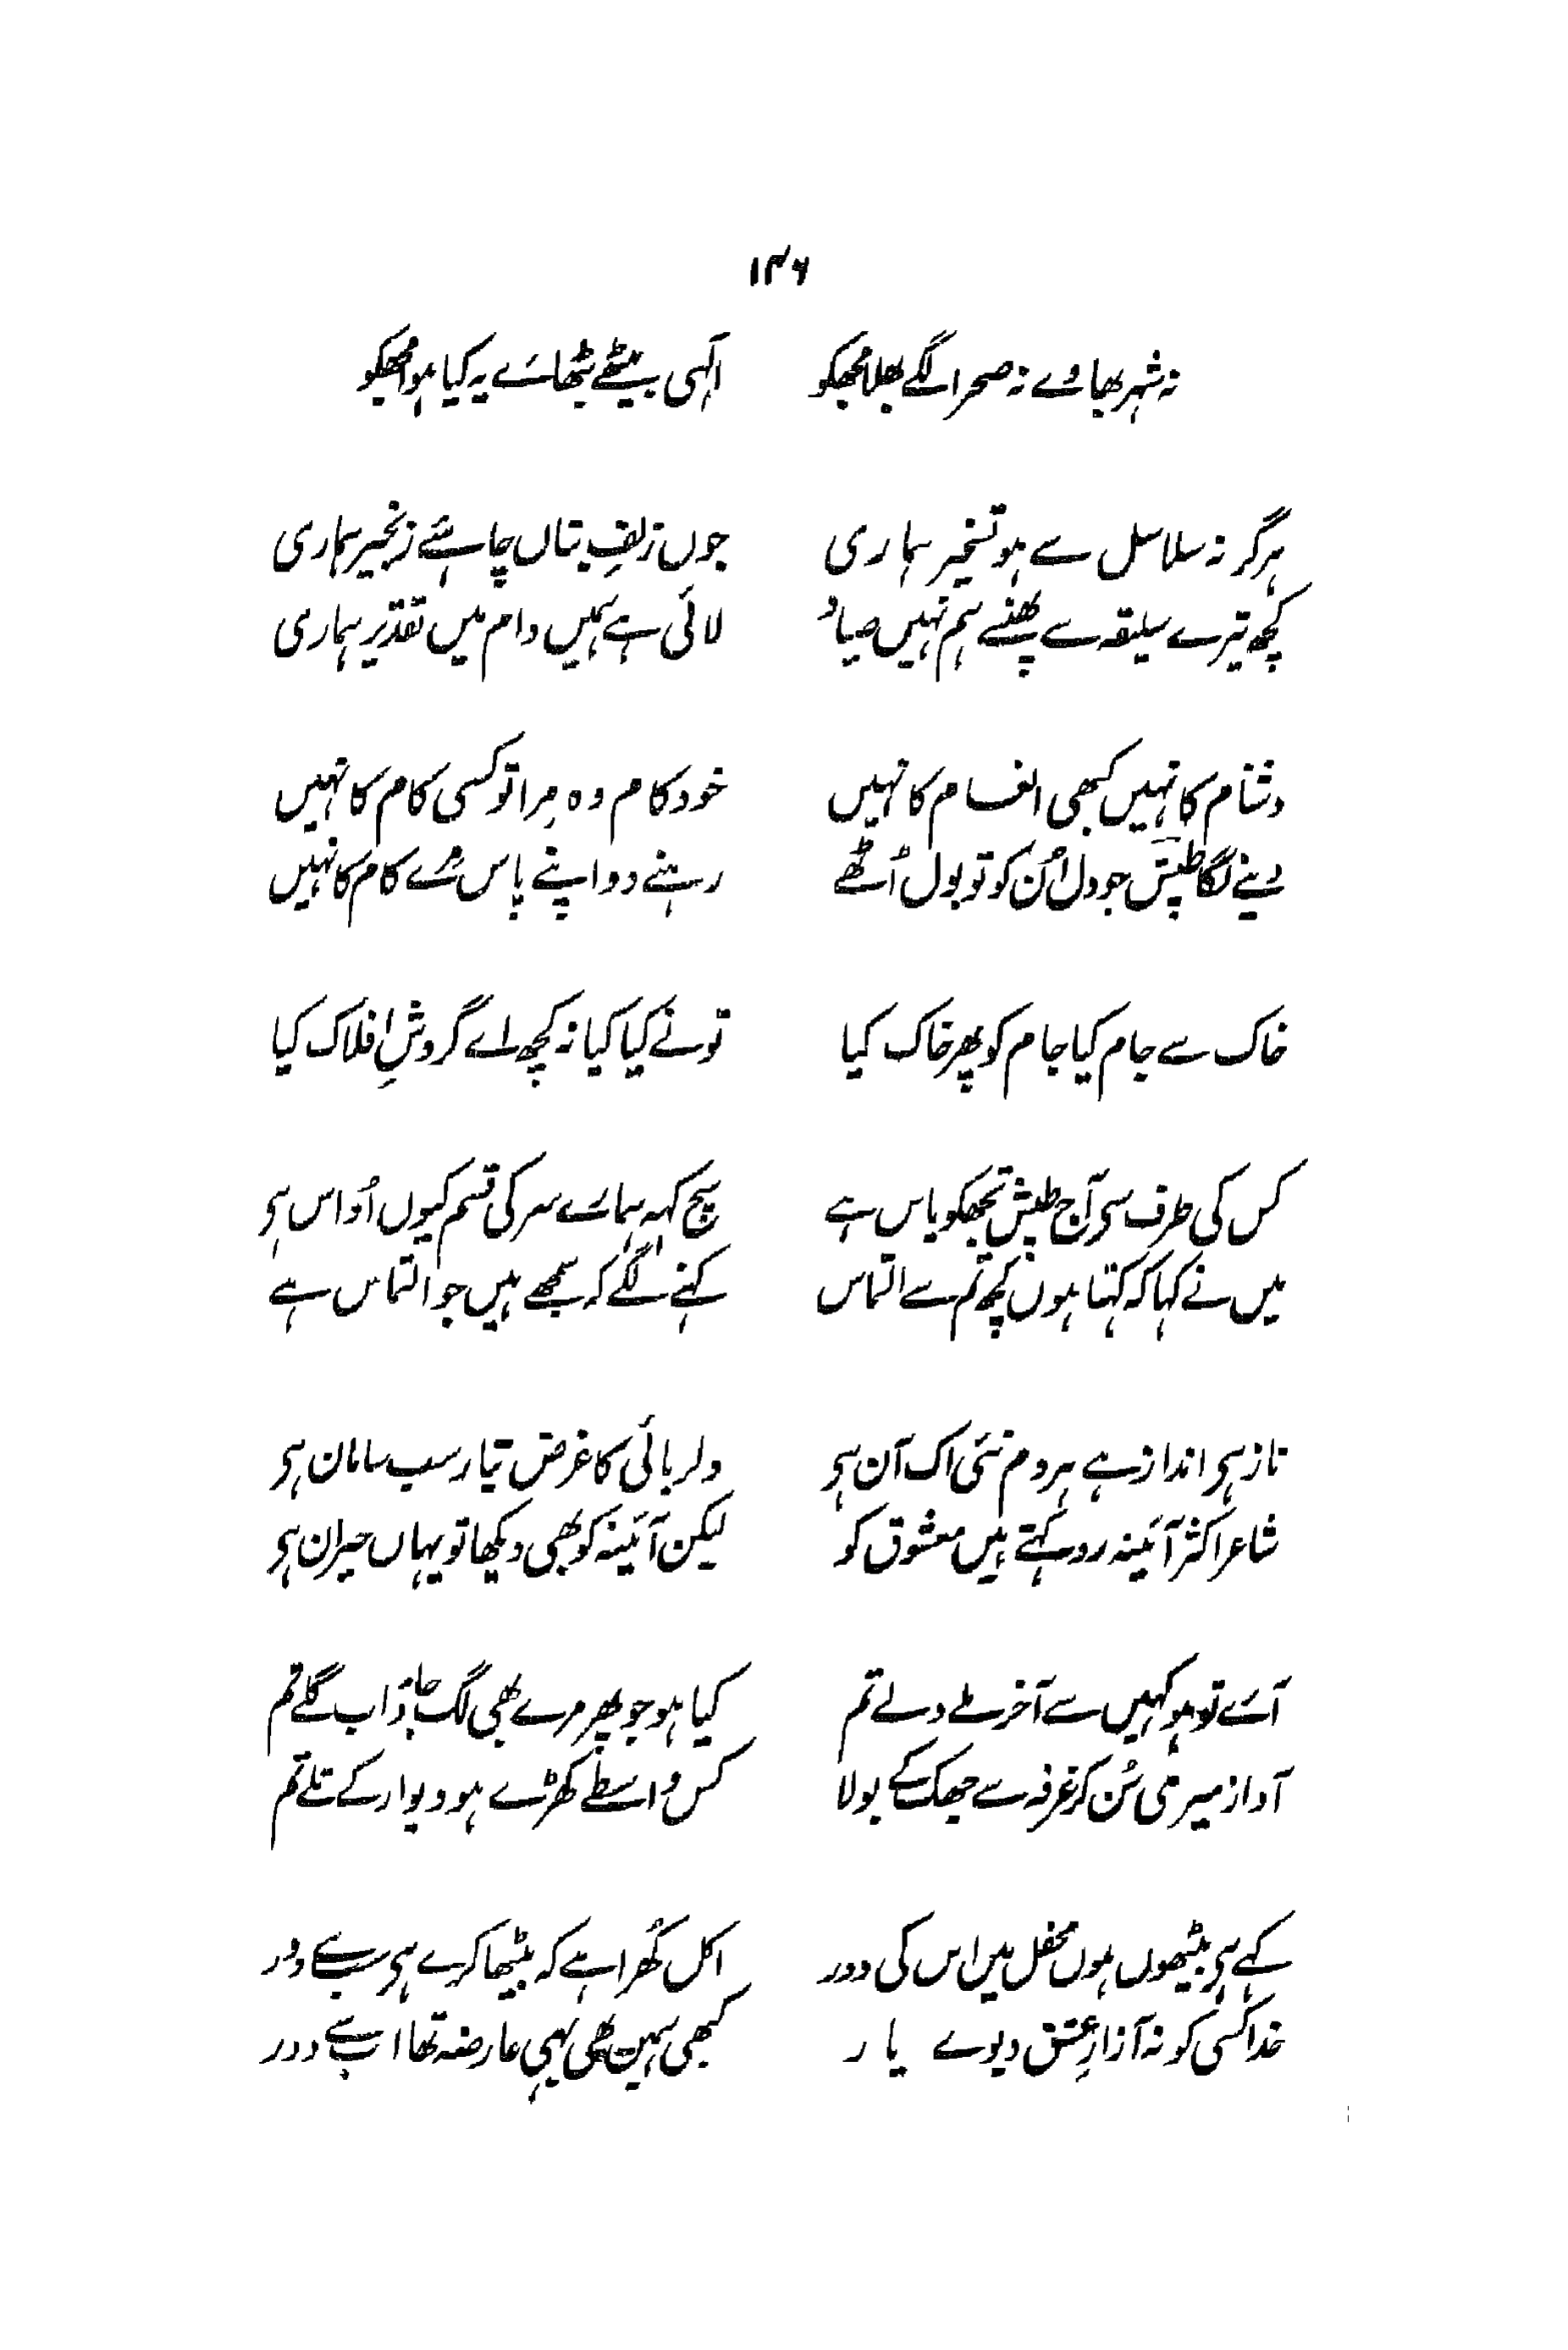 ۱۴۶
نہ شہر بھاوے نہ صحرا لگے بھلا مجھکو الٰہی بیٹھے بٹھائے یہ کیا ہوا مجھکو
ہرگز نہ سلاسل سے ہو تسخیر ہماری جوں زلفِ بتاں چاہئے زنجیر ہماری
کچھ تیرے سلیقہ سے پھنسے ہم نہیں صیاد لائی ہے ہمیں دام میں تقدیر ہماری
دشنام کا نہیں کبھی انعام کا نہیں خودکام وہ مِرا تو کسی کام کا نہیں
دینے لگا طپش جو دل اُن کو تو بول اُٹھے رہنے دو اپنے پاس مُرے کام کا نہیں
خاک سے جام کیا جام کو پھر خاک کیا تونے کیا کیا نہ کچھ اے گردشِ افلاک کیا
کس کی طرف سے آج طپش تجھکو یاس ہے سچ کہہ ہمارے سر کی قسم کیوں اُداس ہے
میں نے کہا کہ کہتا ہوں کچھ تم سے التماس کہنے لگے کہ سمجھے ہیں جو التماس ہے
ناز ہے انداز ہے ہر دم نئی اک آن ہے دلربائی کا غرض تیار سب سامان ہے
شاعر اکثر آئینہ رو کہتے ہیں معشوق کو لیکن آئینہ کو بھی دیکھا تو یہاں حیران ہے
آئے تو ہو کہیں سے آخر ملے دلے تم کیا ہو جو پھر مرے بھی لگ جاؤ اب گلے تم
آواز میری سُن کر غرفہ سے جھک کے بولا کس واسطے کھڑے ہو دیوار کے تلے تم
کہے ہے بیٹھوں ہوں محفل میں اس کی دور اکل کُھرا ہے کہ بیٹھا کرے ہے سب سے دور
خدا کسی کو نہ آزارِ عشق دیوے یار کبھی ہمین بھی یہی عارضہ تھا اب سے دور